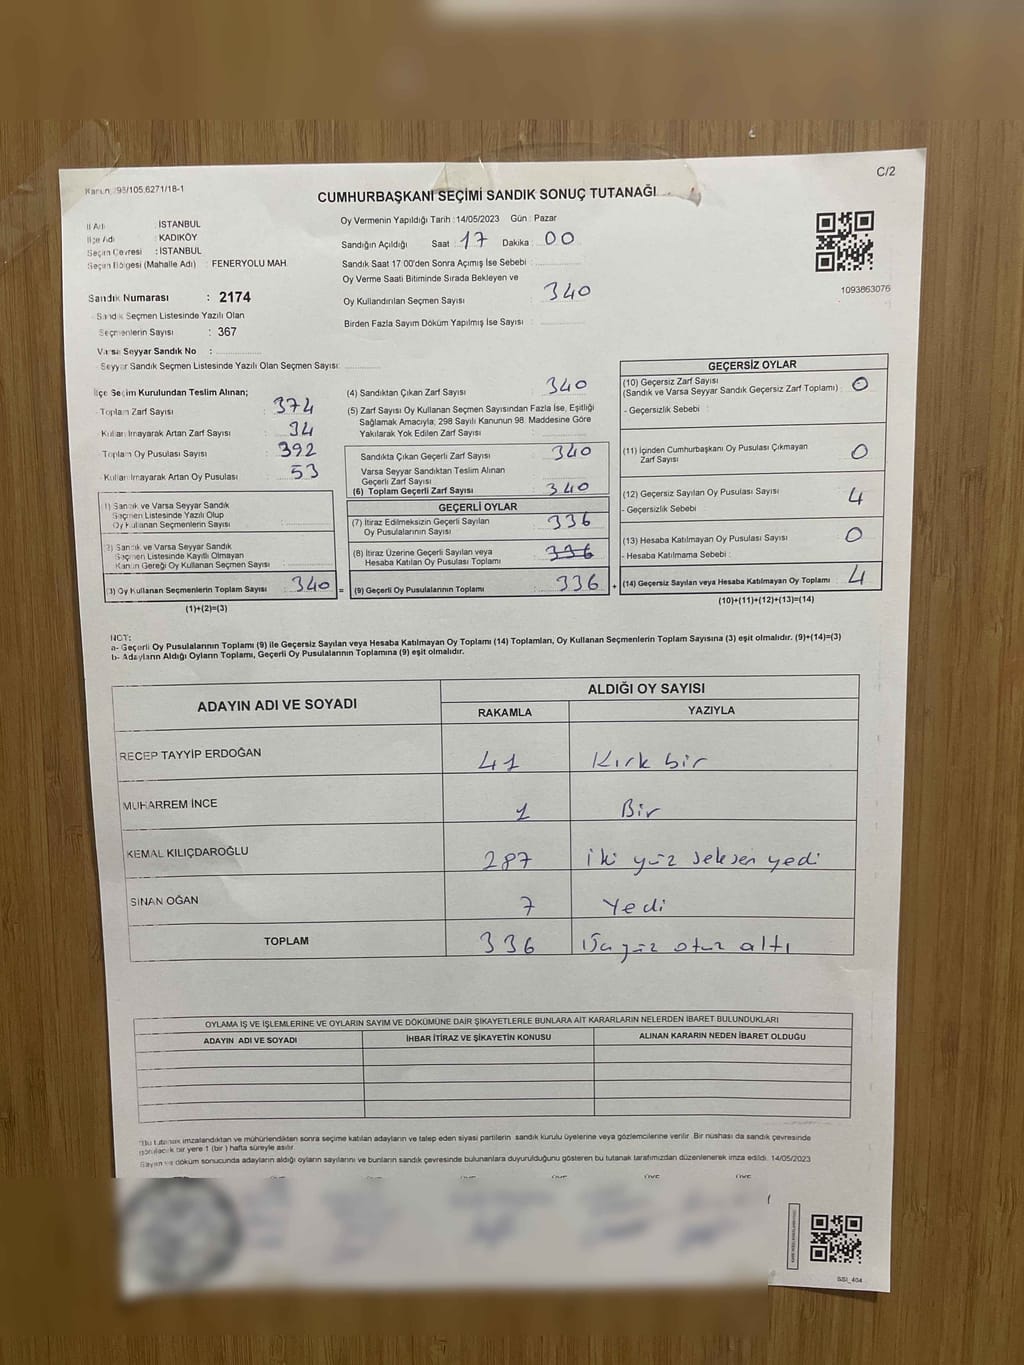 C/2
Kanun: 298/105,6271/18-1
CUMHURBAŞKANI SEÇİMİ SANDIK SONUÇ TUTANAĞI
İl Adı : İSTANBUL
İlçe Adı : KADIKÖY
Seçim Çevresi : İSTANBUL
Seçim Bölgesi (Mahalle Adı) : FENERYOLU MAH.
Sandık Numarası : 2174
Sandık Seçmen Listesinde Yazılı Olan
Seçmenlerin Sayısı : 367
Varsa Seyyar Sandık No :
Seyyar Sandık Seçmen Listesinde Yazılı Olan Seçmen Sayısı:
Oy Vermenin Yapıldığı Tarih : 14/05/2023 Gün : Pazar
Sandığın Açıldığı Saat : 17 Dakika : 00
Sandık Saat 17.00'den Sonra Açımış İse Sebebi :
Oy Verme Saati Bitiminde Sırada Bekleyen ve
Oy Kullandırılan Seçmen Sayısı : 340
Birden Fazla Sayım Döküm Yapılmış İse Sayısı :
1093863076
İlçe Seçim Kurulundan Teslim Alınan;
Toplam Zarf Sayısı : 374
Kullanılmayarak Artan Zarf Sayısı : 34
Toplam Oy Pusulası Sayısı : 392
Kullanılmayarak Artan Oy Pusulası : 53
1) Sandık ve Varsa Seyyar Sandık
Seçmen Listesinde Yazılı Olup
Oy Kullanan Seçmenlerin Sayısı :
2) Sandık ve Varsa Seyyar Sandık
Seçmen Listesinde Kayıtlı Olmayan
Kanun Gereği Oy Kullanan Seçmen Sayısı :
(3) Oy Kullanan Seçmenlerin Toplam Sayısı : 340 =
(1)+(2)=(3)
(4) Sandıktan Çıkan Zarf Sayısı : 340
(5) Zarf Sayısı Oy Kullanan Seçmen Sayısından Fazla İse, Eşitliği
Sağlamak Amacıyla; 298 Sayılı Kanunun 98. Maddesine Göre
Yakılarak Yok Edilen Zarf Sayısı :
Sandıkta Çıkan Geçerli Zarf Sayısı : 340
Varsa Seyyar Sandıktan Teslim Alınan
Geçerli Zarf Sayısı :
(6) Toplam Geçerli Zarf Sayısı : 340
GEÇERLİ OYLAR
(7) İtiraz Edilmeksizin Geçerli Sayılan
Oy Pusulalarının Sayısı : 336
(8) İtiraz Üzerine Geçerli Sayılan veya
Hesaba Katılan Oy Pusulası Toplamı : 336
(9) Geçerli Oy Pusulalarının Toplamı : 336 +
GEÇERSİZ OYLAR
(10) Geçersiz Zarf Sayısı
(Sandık ve Varsa Seyyar Sandık Geçersiz Zarf Toplamı) : 0
- Geçersizlik Sebebi :
(11) İçinden Cumhurbaşkanı Oy Pusulası Çıkmayan
Zarf Sayısı : 0
(12) Geçersiz Sayılan Oy Pusulası Sayısı : 4
- Geçersizlik Sebebi :
(13) Hesaba Katılmayan Oy Pusulası Sayısı : 0
- Hesaba Katılmama Sebebi :
(14) Geçersiz Sayılan veya Hesaba Katılmayan Oy Toplamı : 4
(10)+(11)+(12)+(13)=(14)
NOT:
a- Geçerli Oy Pusulalarının Toplamı (9) ile Geçersiz Sayılan veya Hesaba Katılmayan Oy Toplamı (14) Toplamları, Oy Kullanan Seçmenlerin Toplam Sayısına (3) eşit olmalıdır. (9)+(14)=(3)
b- Adayların Aldığı Oyların Toplamı, Geçerli Oy Pusulalarının Toplamına (9) eşit olmalıdır.
ADAYIN ADI VE SOYADI
ALDIĞI OY SAYISI
RAKAMLA YAZIYLA
RECEP TAYYİP ERDOĞAN 41 Kırk bir
MUHARREM İNCE 1 Bir
KEMAL KILIÇDAROĞLU 287 iki yüz seksen yedi
SİNAN OĞAN 7 Yedi
TOPLAM 336 yüz otuz altı
OYLAMA İŞ VE İŞLEMLERİNE VE OYLARIN SAYIM VE DÖKÜMÜNE DAİR ŞİKAYETLERLE BUNLARA AİT KARARLARIN NELERDEN İBARET BULUNDUKLARI
ADAYIN ADI VE SOYADI İHBAR İTİRAZ VE ŞİKAYETİN KONUSU ALINAN KARARIN NEDEN İBARET OLDUĞU
*Bu tutanak imzalandıktan ve mühürlendikten sonra seçime katılan adayların ve talep eden siyasi partilerin sandık kurulu üyelerine veya gözlemcilerine verilir. Bir nüshası da sandık çevresinde
görülecek bir yere 1 (bir) hafta süreyle asılır.
Sayım ve döküm sonucunda adayların aldığı oyların sayılarını ve bunların sandık çevresinde bulunanlara duyurulduğunu gösteren bu tutanak tarafımızdan düzenlenerek imza edildi. 14/05/2023
SSI_404